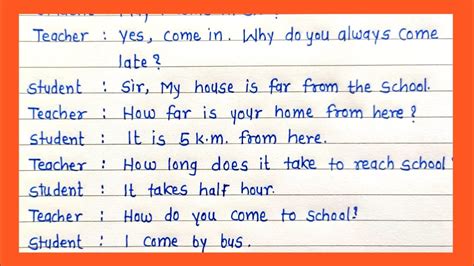 Teacher : Yes, come in. Why do you always come
late?
Student : Sir, My house is far from the school.
Teacher : How far is your home from here?
Student : It is 5 k.m. from here.
Teacher : How long does it take to reach school?
Student : It takes half hour.
Teacher : How do you come to school?
Student : I come by bus.